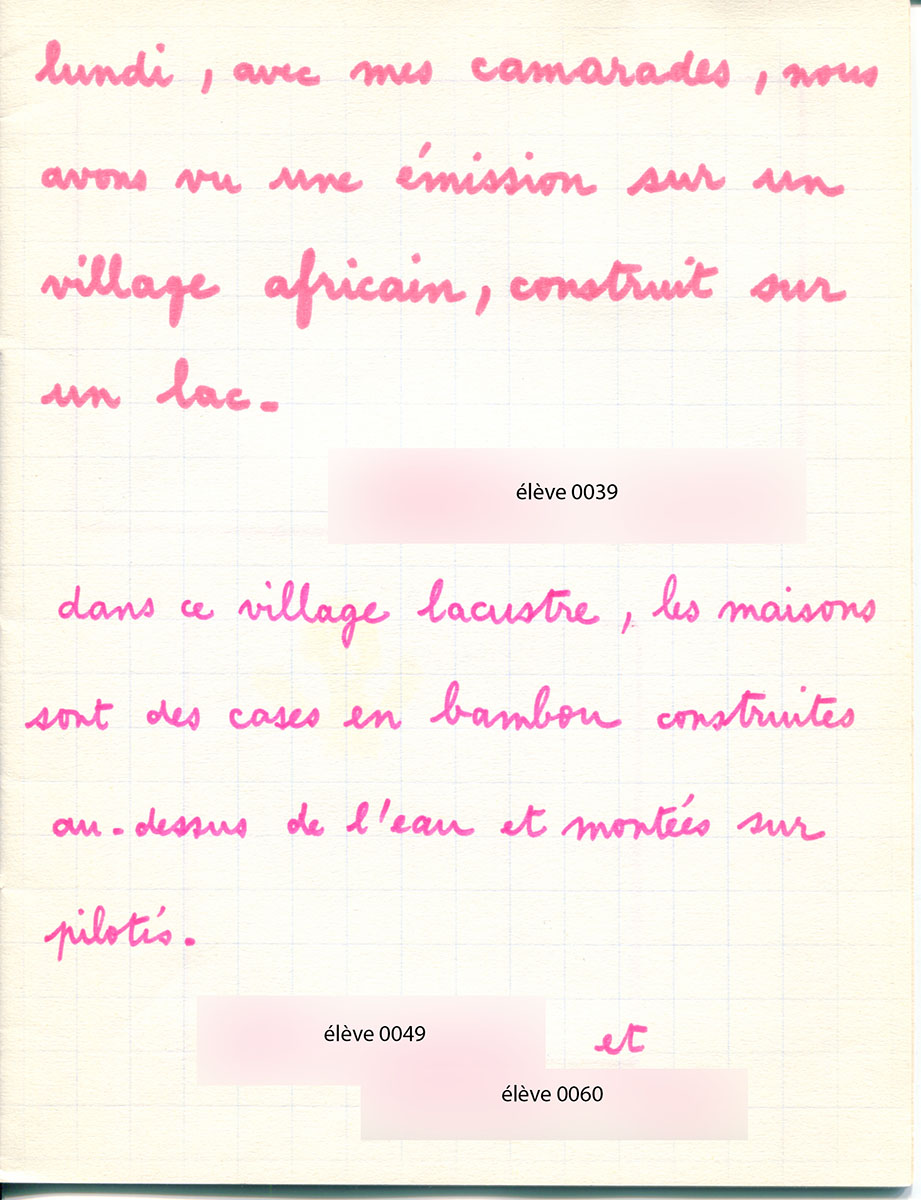 lundi, avec mes camarades, nous
avons vu une émission sur un
village africain, construit sur
un lac.
élève 0039
dans ce village lacustre, les maisons
sont des cases en bambou construites
au-dessus de l'eau et montées sur
pilotis.
élève 0049
et
élève 0060